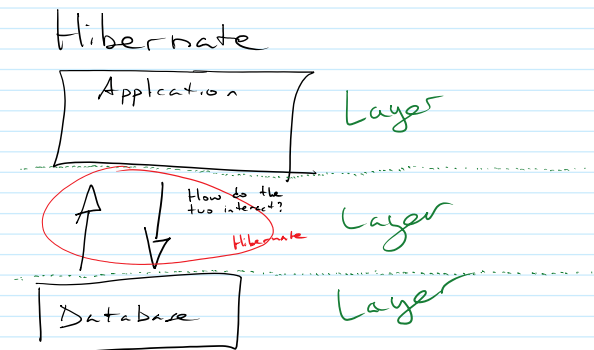 Hibernate
Applcation
Layer
How do the
two interect?
Hibernate
Layer
Database
Layer